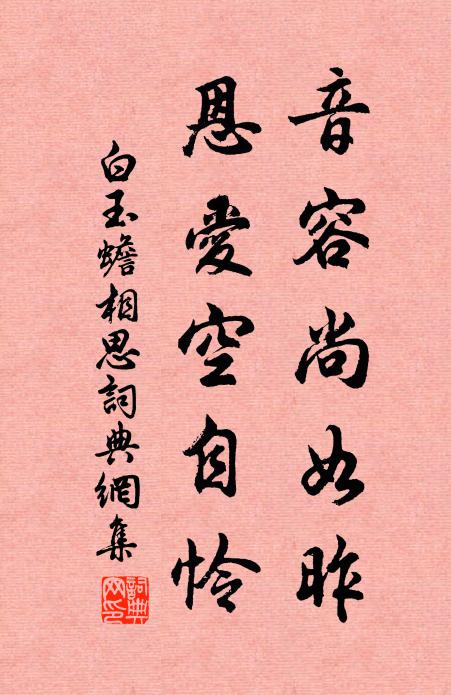 音容尚如昨
恩愛空自憐
白玉蟾相思詞典網集
詞典网印